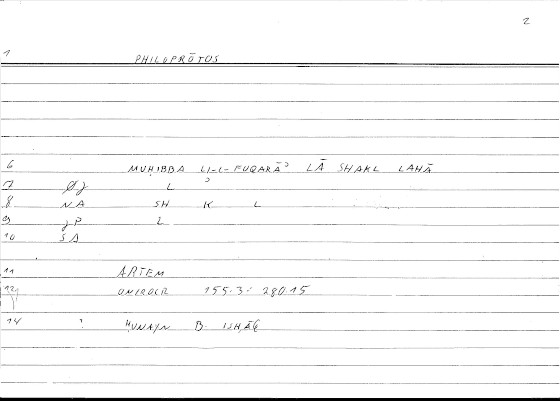 2
1 PHILOPRŌTOS
6 MUḤIBBA LI-L-FUQARĀʾ LĀ SHAKL LAHĀ
7 L ʾ
8 NA SH K L
9 L
10 SA
11 ARTEM
12 ONIROCR 155.3: 280.15
14 ḤUNAYN B. ISḤĀQ